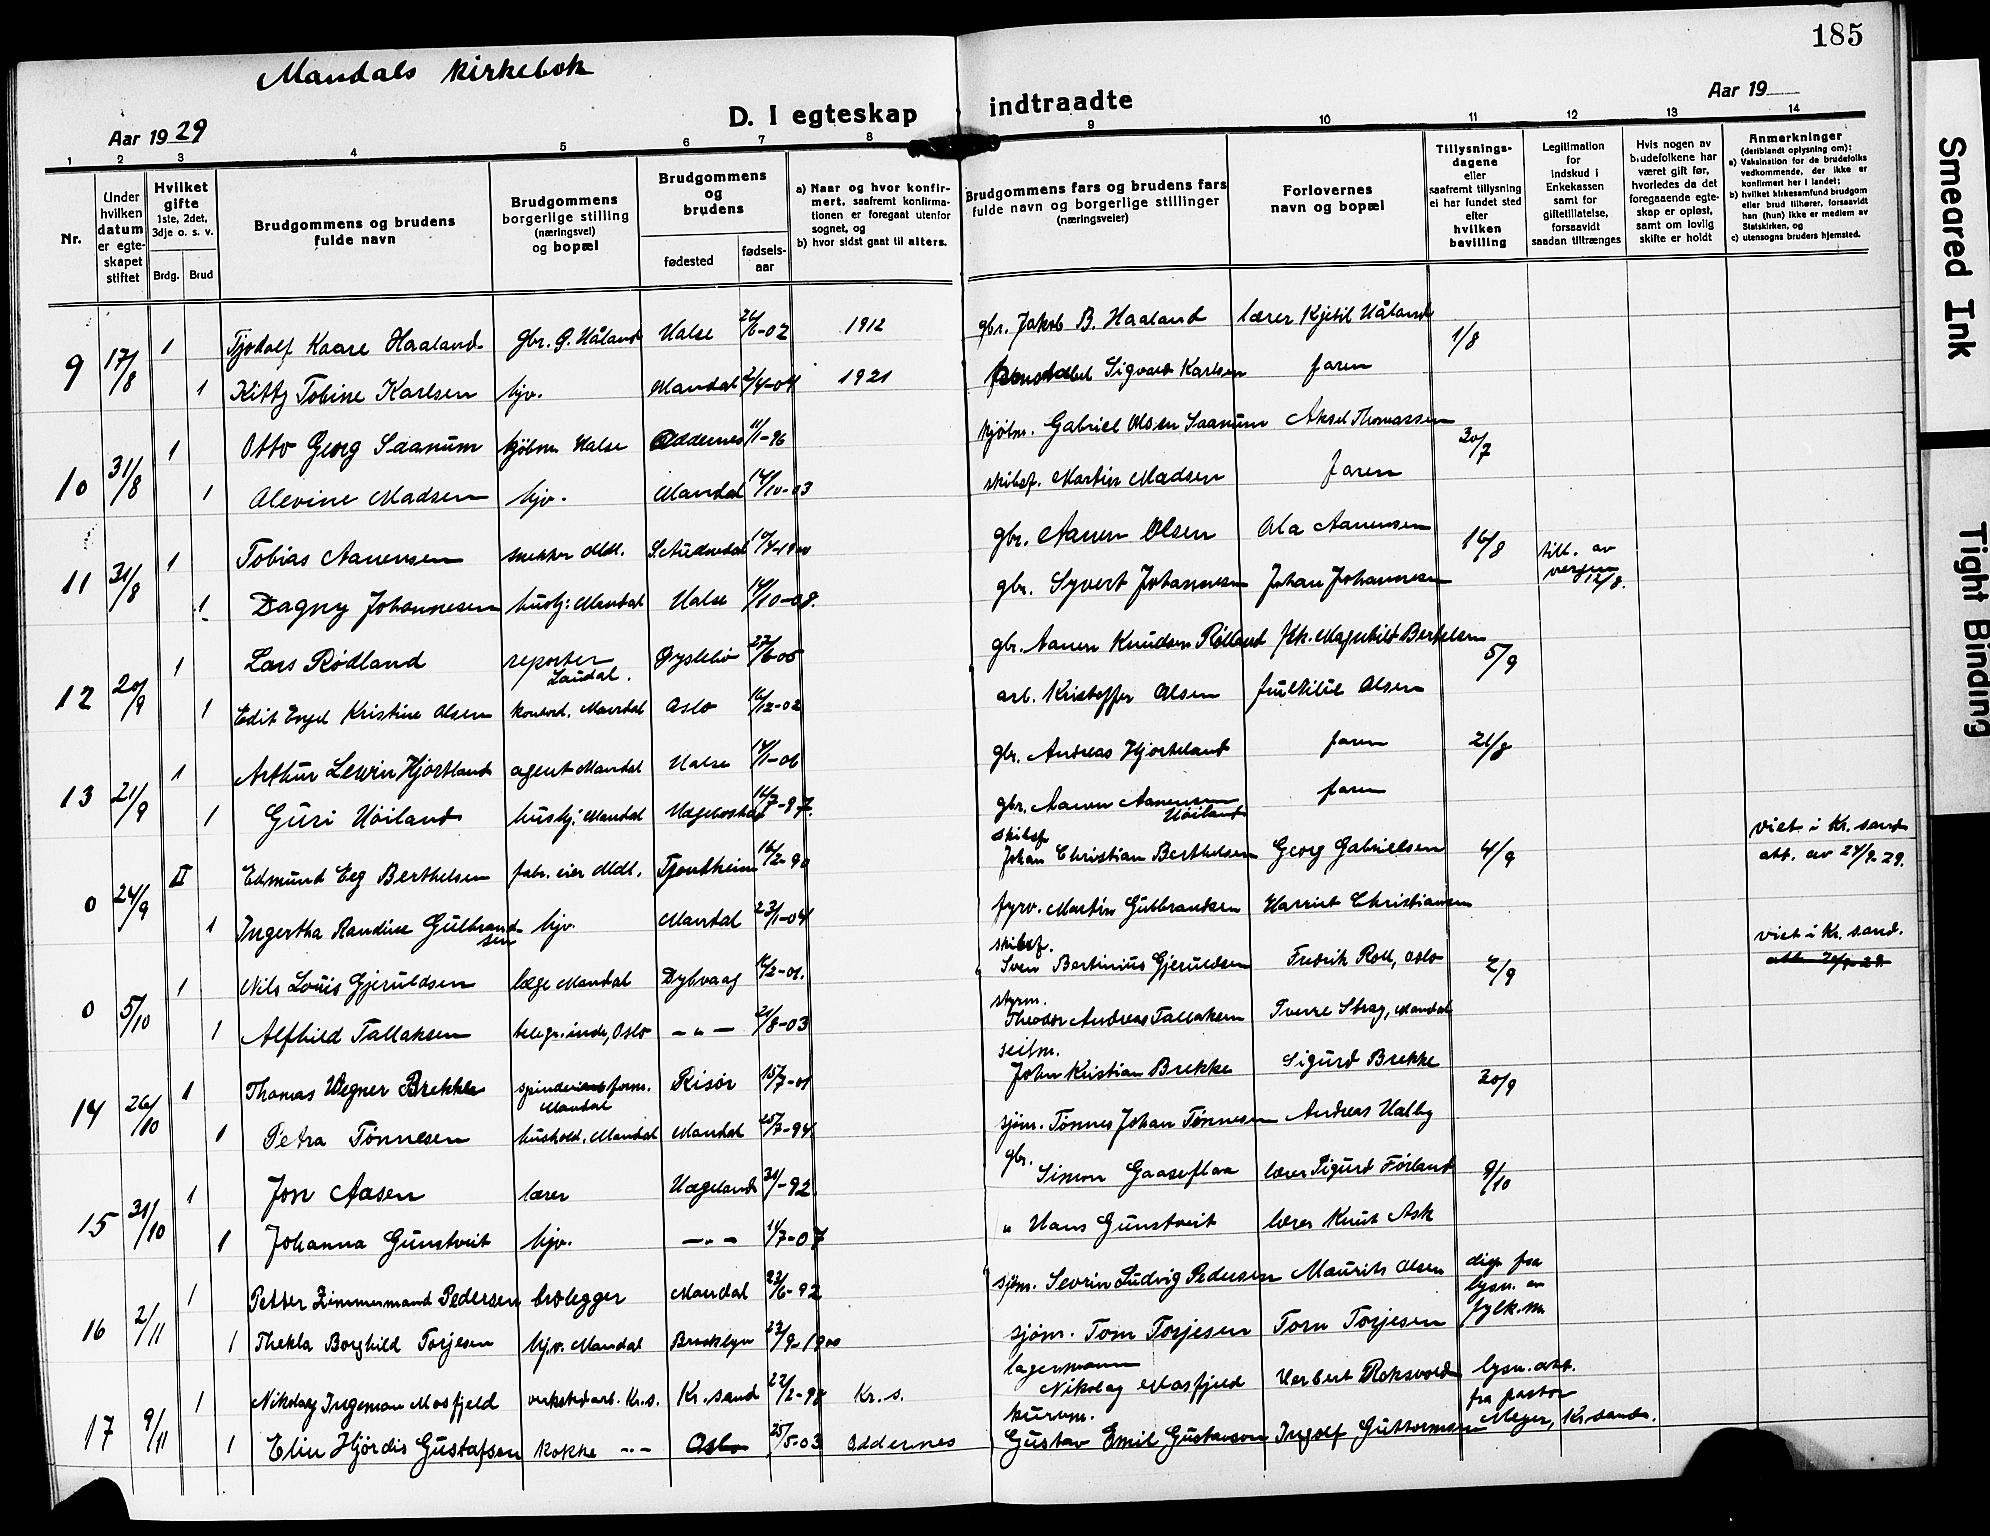 185
Mandals kirkebok
D. I egteskap indtraadte
Aar 1929
Aar 19
1 2 3 4 5 6 7 8 9 10 11 12 13 14
Nr.
Under hvilken datum er egteskapet stiftet
Hvilket gifte 1ste, 2det, 3dje o. s. v.
Brdg. Brud
Brudgommens og brudens fulde navn
Brudgommens borgerlige stilling (næringsvei) og bopæl
Brudgommens og brudens
fødested
fødselsaar
a) Naar og hvor konfirmert, saafremt konfirmationen er foregaat utenfor sognet, og
b) hvor sidst gaat til alters.
Brudgommens fars og brudens fars fulde navn og borgerlige stillinger (næringsveier)
Forlovernes navn og bopæl
Tillysningsdagene eller saafremt tillysning ei har fundet sted efter hvilken bevilling
Legitimation for indskud i Enkekassen samt for giftetillatelse, forsaavidt saadan tiltrænges
Hvis nogen av brudefolkene har været gift før, hvorledes da det foregaaende egteskap er opløst, samt om lovlig skifte er holdt
Anmerkninger (deriblandt oplysning om):
a) Vaksination for de brudefolks vedkommende, der ikke er konfirmert her i landet;
b) hvilket kirkesamfund brudgom eller brud tilhører, forsaavidt han (hun) ikke er medlem av Statskirken, og
c) utensogns bruders hjemsted.
9 17/8 1 Tjodolf Kaare Haaland gbr. G. Håland Halse 26/6-02 1912 gbr. Jakob B. Haaland lærer Kjetil Håland 1/8
1 Kitty Tobine Karlsen hjv. Mandal 2/4-04 1921 Sigvald Karlsen faren
10 31/8 1 Otto Georg Saanum kjøbm. Halse Oddernes 11/1-96 kjøbm. Gabriel Olsen Saanum Aksel Thomassen 30/7
1 Olevine Madsen hjv. Mandal 14/10-03 skibsf. Martin Madsen faren
11 31/8 1 Tobias Aanensen snekker Mdl. S. Audnedal 10/4-1900 gbr. Aanen Olsen Ola Aanensen 16/8 till. av vergen 12/8.
1 Dagny Johannesen hushj. Mandal Halse 14/10-08. gbr. Syvert Johannesen Johan Johannesen
12 20/9 1 Lars Rødland reporter Laudal. Øyslebø 27/6-05 gbr. Aanen Knudsen Rødland frk. Magnhild Bertelsen 5/9
1 Edit Engel Kristine Olsen kontord. Mandal Oslo 16/12-02 arb. Kristoffer Olsen fru Milie Olsen
13 21/9 1 Arthur Lewin Hjortland agent Mandal Halse 14/1-06 gbr. Andreas Hjorteland faren 21/8
1 Guri Høiland hushj. Mandal Hægebostad 16/7-97. gbr. Aanen Aanensen Høiland faren
0 24/9 II Edmund Eeg Berthelsen fabr. eier Mdl. Tjontheim 16/2-90 skibsf. Johan Christian Berthelsen Georg Gabrielsen 4/9 viet i Kr. sand att. av 24/9 29.
1 Ingertha Randine Gulbrandsen hjv. Mandal 23/1-04 fyrv. Martin Gulbrandsen Harriet Christiansen
0 5/10 1 Nils Louis Gjeruldsen læge Mandal Dybvaag 16/2-01. skibsf. Sven Bertinius Gjeruldsen Fredrik Roll, Oslo 2/9 viet i Kr. sand.
1 Alfhild Tallaksen telegr.inde, Oslo — „ — 21/8-03 styrm. Theodor Andreas Tallaksen Sverre Strag, Mandal
14 26/10 1 Thomas Wegner Brekke spinderi form. Mandal Risør 15/7-01 seilm. John Kristian Brekke Sigurd Brekke 20/9
1 Petra Tønnesen hushold. Mandal Mandal 25/7-94 sjøm. Tønnes Johan Tønnesen Andreas Halby
15 31/10 1 Jon Aasen lærer Hægeland -92. gbr. Simon Gaaseflaa lærer Sigurd Førland 9/10
1 Johanna Gunstveit hjv. — „ — 14/7-07 „ Hans Gunstveit lærer Knut Ask
16 2/11 1 Petter Zimmermand Pedersen brolegger Mandal 23/6-92 sjøm. Sevrin Ludvig Pedersen Maurits Olsen disp. fra lysn. av fylk.m
1 Thekla Borghild Torjesen hjv. Mandal Brooklyn 22/9-1900 sjøm. Tom Torjesen Tom Torjesen
17 9/11 1 Nikolay Ingeman Mosfjeld verkstedarb. Kr.s. Kr.sand 22/2-98 Kr. s. lagermann Nikolay Mosfjeld Herbert Roksvold lysn. att. fra pastor Meyer, Kr.sand.
1 Elin Hjørdis Gustafsen kokke — „ — Oslo 25/5-03 Oddernes kurvm. Gustav Emil Gustavson Ingolf Guttormsen
Smeared Ink
Tight Binding